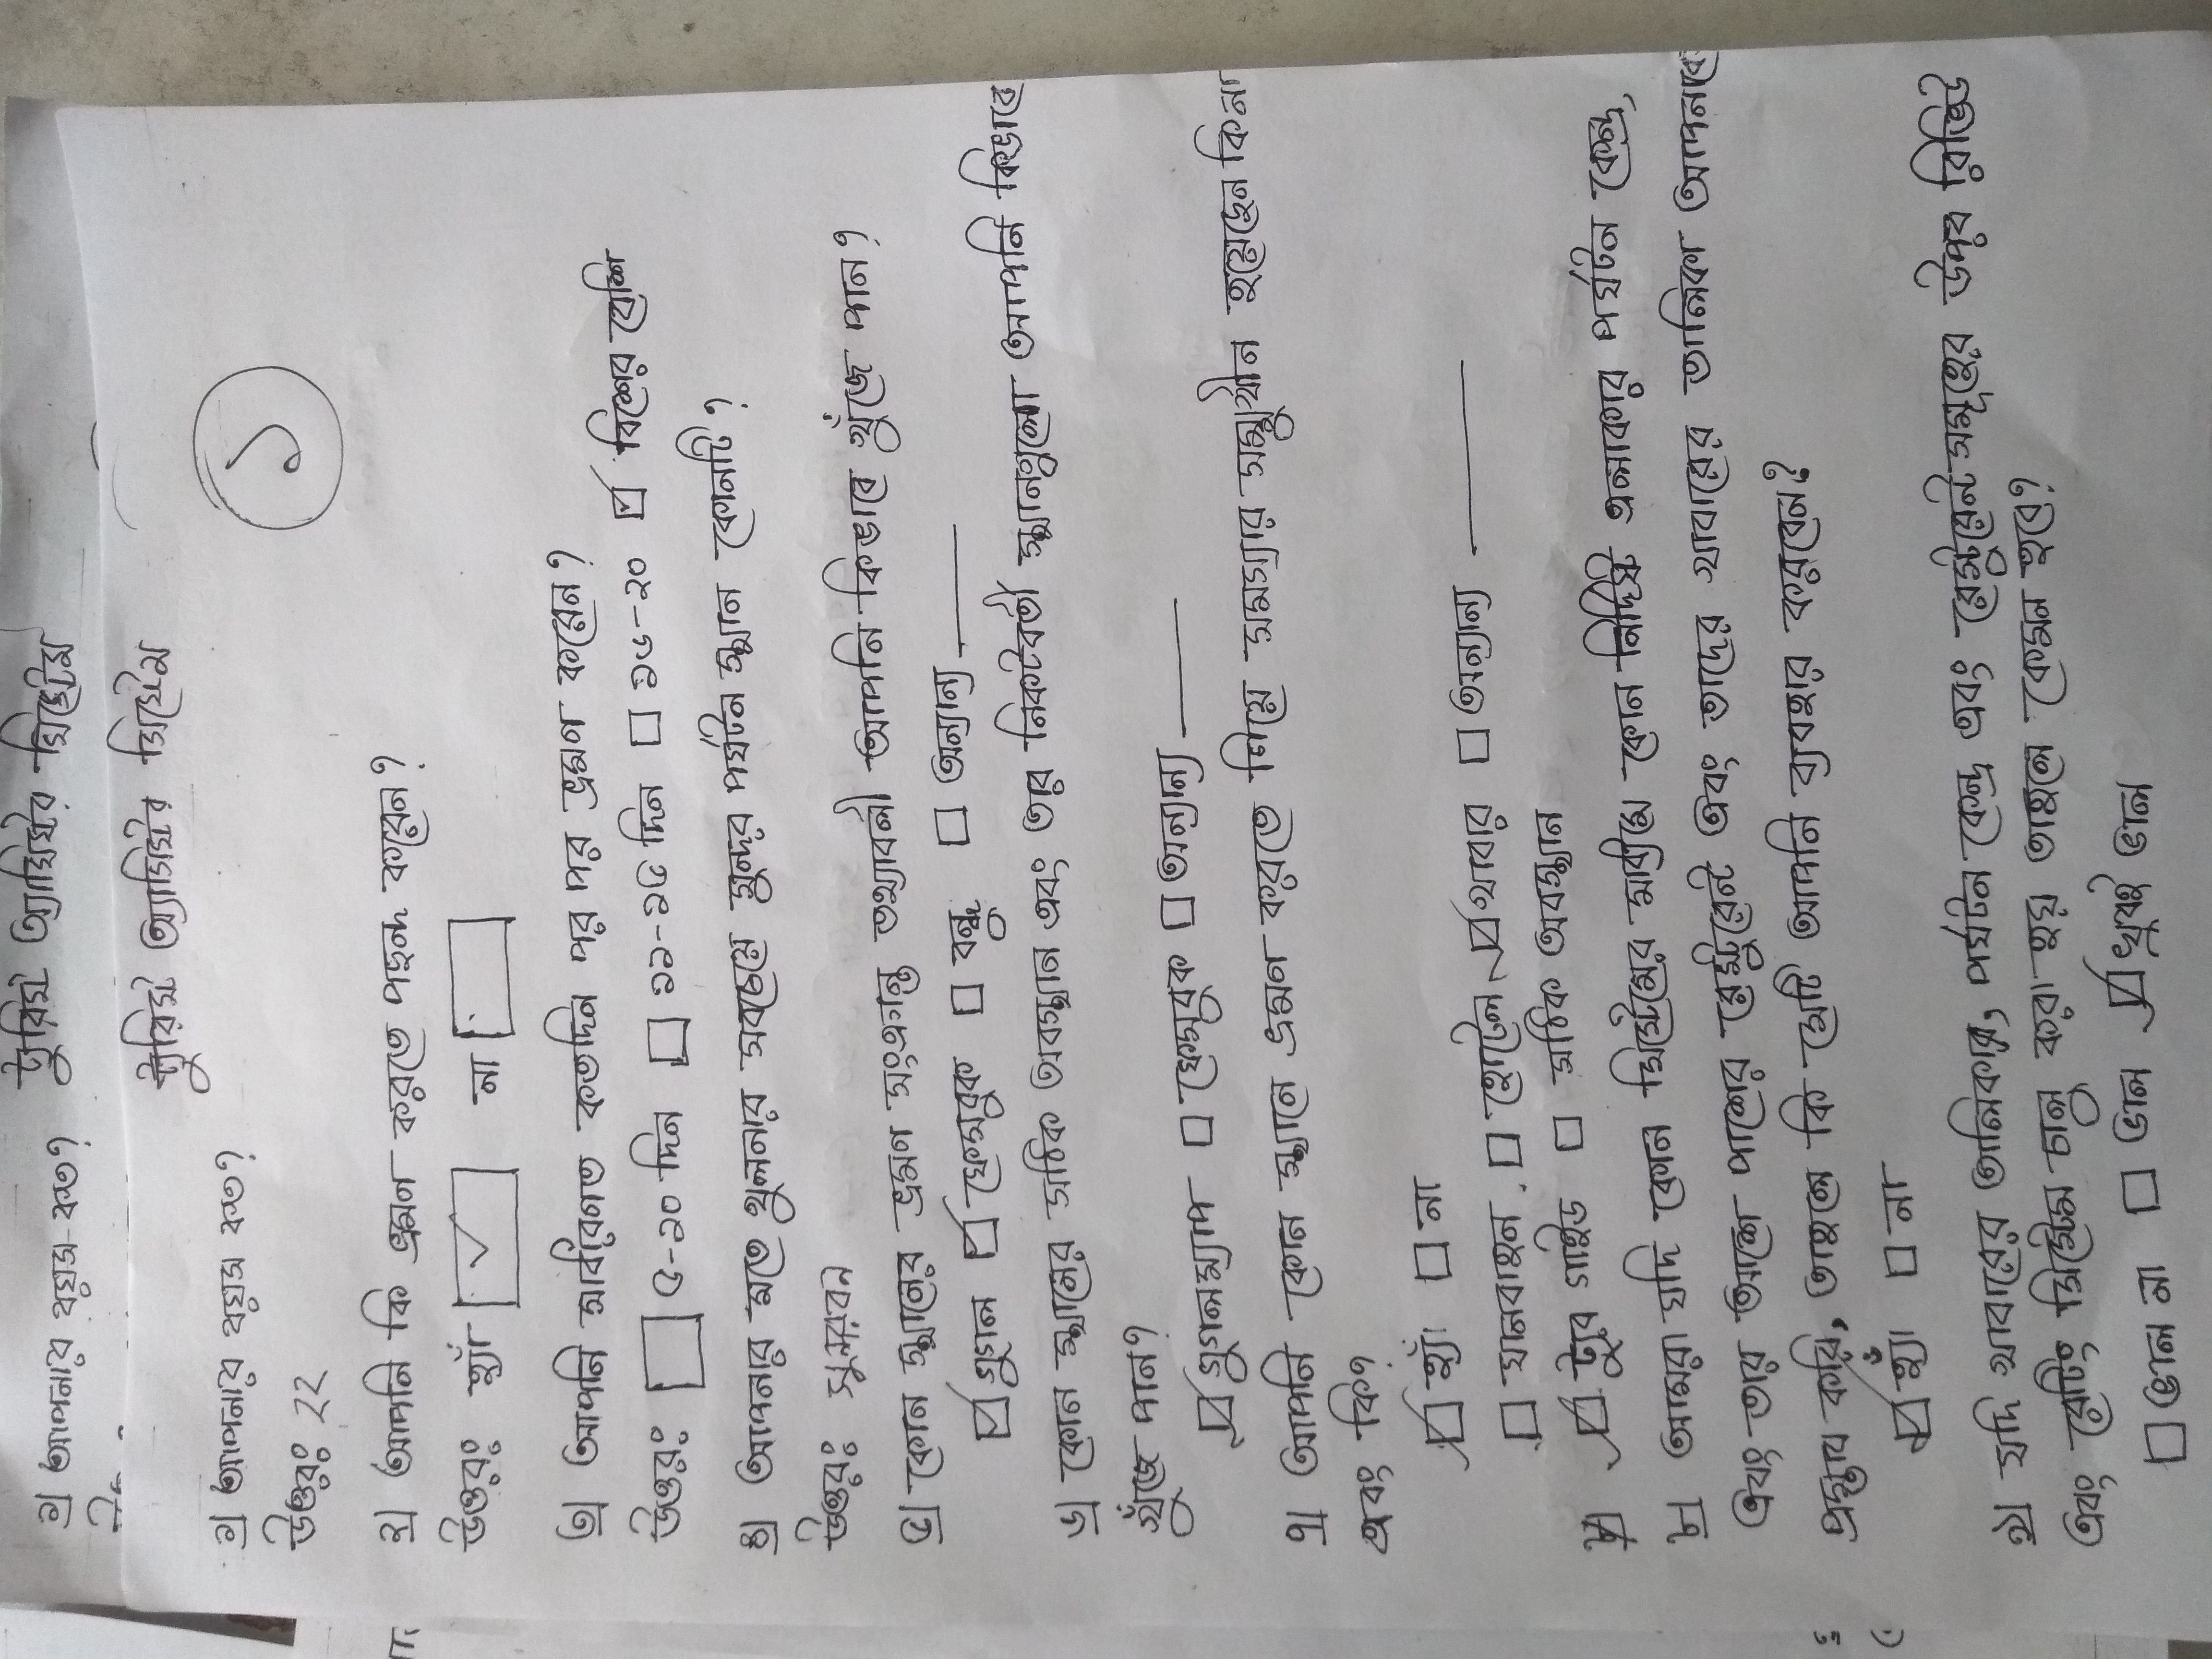 ১) আপনার বয়স কত? টুরিস্ট অ্যাসিস্টর সিস্টেম
টুরিস্ট অ্যাসিস্টর সিস্টেম
১) আপনার বয়স কত?
১
উত্তরঃ ২২
২) আপনি কি ভ্রমণ করতে পছন্দ করেন?
উত্তরঃ হ্যাঁ ☑ না ☐
৩) আপনি সাধারণত কতদিন পর পর ভ্রমণ করেন?
উত্তরঃ ☐ ৫-১০ দিন ☐ ১১-১৫ দিন ☐ ১৬-২০ ☑ বিশের বেশি
৪) আপনার মতে খুলনার সবচেয়ে সুন্দর পর্যটন স্থান কোনটি?
উত্তরঃ সুন্দরবন
৫) কোন স্থানের ভ্রমণ সংক্রান্ত তথ্যাবলী আপনি কিভাবে খুঁজে পান?
☑ গুগল ☑ ফেসবুক ☐ বন্ধু ☐ অন্যান্য ____
৬) কোন স্থানের সঠিক অবস্থান এবং তার নিকটবর্তী স্থানগুলো আপনি কিভাবে
খুঁজে পান?
☑ গুগলম্যাপ ☐ ফেসবুক ☐ অন্যান্য ____
৭) আপনি কোন স্থানে ভ্রমণ করতে গিয়ে সমস্যার সম্মুখীন হয়েছেন কি না
এবং কি?
☑ হ্যাঁ ☐ না
☐ যানবাহন ☐ হোটেল ☑ খাবার ☐ অন্যান্য ____
☑ ট্যুর গাইড ☐ সঠিক অবস্থান
৮) আমরা যদি কোন সিস্টেমের মাধ্যমে কোন নির্দিষ্ট এলাকার পর্যটন কেন্দ্র,
এবং তার আশে পাশের রেস্টুরেন্ট এবং তাদের খাবারের তালিকা আপনাকে
প্রস্তাব করি, তাহলে কি সেটি আপনি ব্যবহার করবেন?
☑ হ্যাঁ ☐ না
৯) যদি খাবারের তালিকার, পর্যটন কেন্দ্র এবং রেস্টুরেন্ট সমূহের উপর রিভিউ
এবং রেটিং সিস্টেম চালু করা হয় তাহলে কেমন হবে?
☐ ভাল না ☐ ভাল ☑ খুবই ভাল